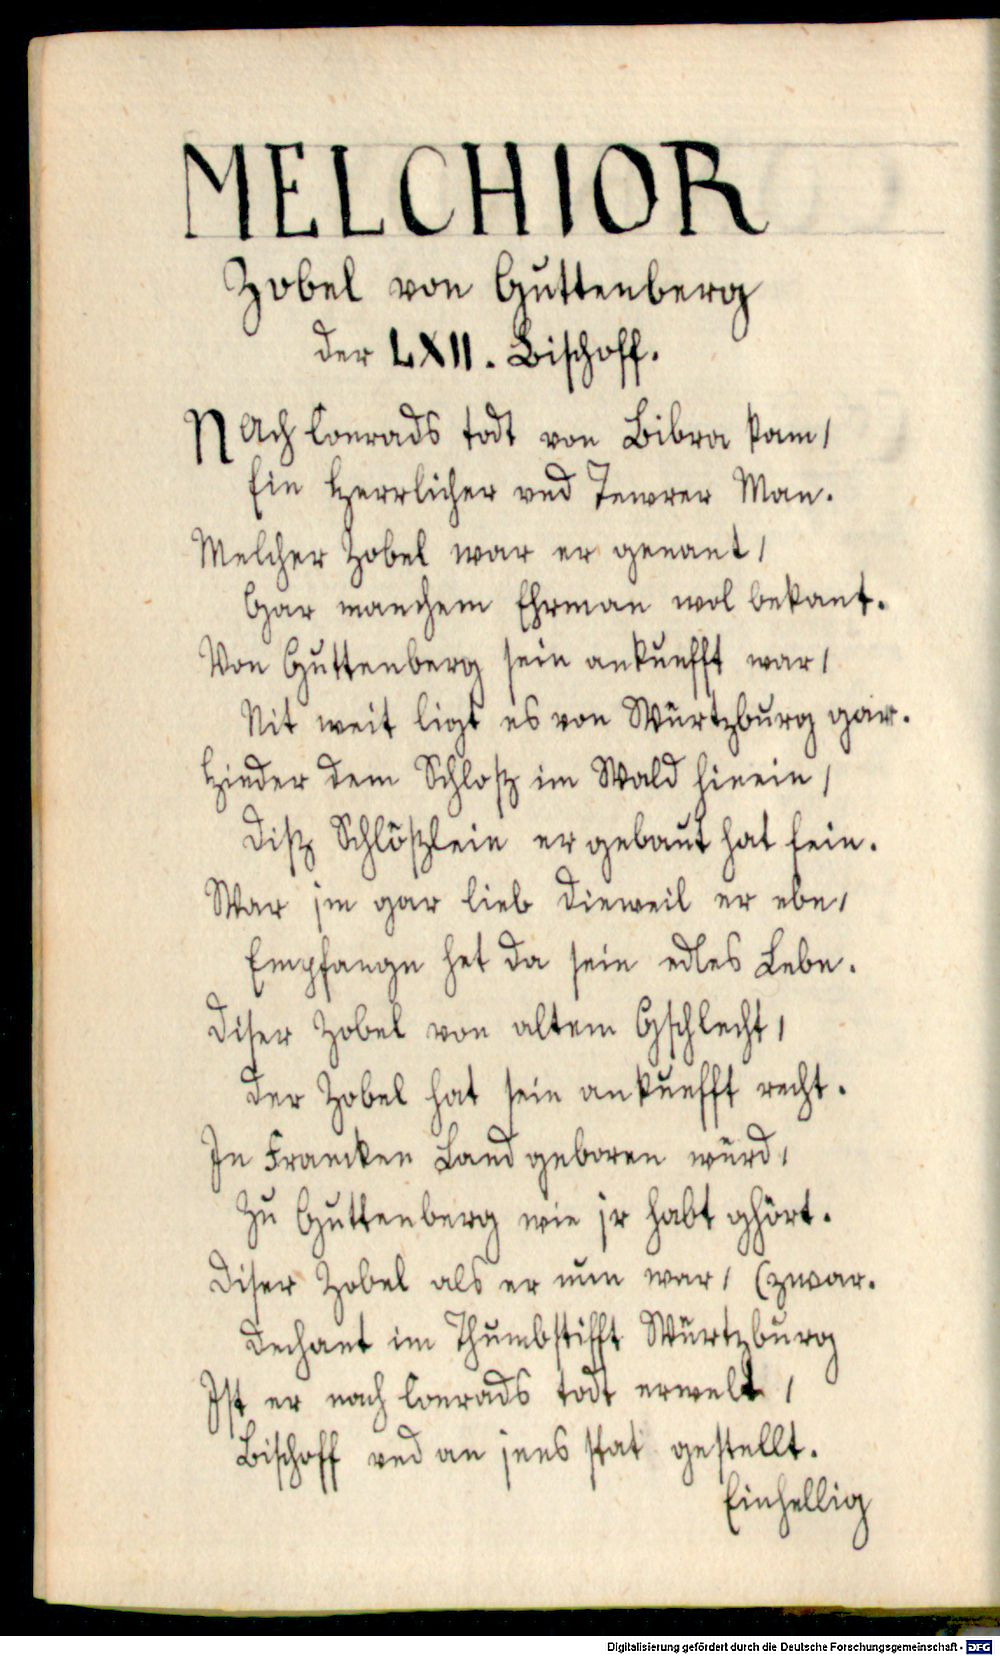 MELCHIOR
Zobel von Guttenberg
der LXII. Bischoff.
NAch Conrads todt von Bibra kam/
Ein Herrlicher vnd Tewrer Man.
Melcher Zobel war er genant/
Gar manchem Ehrman wol bekant.
Von Guttenberg sein ankunfft war/
Nit weit ligt es von Würtzburg gar.
Hinder dem Schlosz im Wald hinein/
Disz Schlöszlein er gebaut hat fein.
War jm gar lieb dieweil er ebn/
Empfangn het da sein edles Lebn.
Diser Zobel von altem Gschlecht/
Der Zobel hat sein ankunfft recht.
In Francken Land geboren würd/
Zu Guttenberg wie jr habt ghört.
Diser Zobel als er nun war/ (zwar.
Dechant im Thumbstifft Würtzburg
Ist er nach Conrads todt erwelt/
Bischoff vnd an jens stat gestellt.
Einhellig
Digitalisierung gefördert durch die Deutsche Forschungsgemeinschaft - DFG